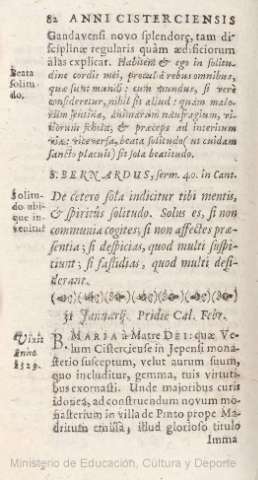 82 ANNI CISTERCIENSIS
Gandavensi novo splendore, tam di-
sciplinæ regularis quàm ædificiorum
alas explicat. Habitem & ego in solitu-
Beata solitu-
do.
dine cordis mei, procul à rebus omnibus,
quæ sunt mundi: cum mundus, si verè
consideretur, nihil sit aliud: quàm malo-
rum sentina, animarum naufragium, vi-
tiorum schola, & præceps ad interitum
via: viceversa, beata solitudo (ut cuidam
sancto placuit) sit sola beatitudo.
S. BERNARDUS, serm. 40. in Cant.
Solitu-
do ubi-
que in-
venitur
De cetero sola indicitur tibi mentis,
& spiritûs solitudo. Solus es, si non
communia cogites; si non affectes præ-
sentia; si despicias, quod multi suspi-
ciunt; si fastidias, quod multi desi-
derant.
31 Januarij. Pridie Cal. Febr.
Vixit
anno
1529.
B. MARIA à Matre DEI: quæ Ve-
lum Cisterciense in Jepensi mona-
sterio susceptum, velut aurum suum,
quo includitur, gemma, tuis virtuti-
bus exornasti. Unde majoribus curis
idonea, ad construendum novum mo-
nasterium in villa de Pinto prope Ma-
dritum emissa, illud glorioso titulo
Imma
Ministerio de Educación, Cultura y Deporte